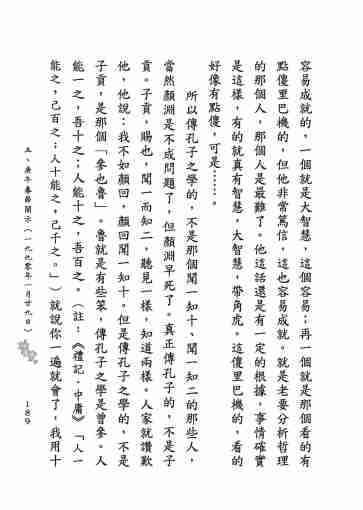 容易成就的，一個就是大智慧，這個容易；再一個就是那個看的有
點傻里巴機的，但他非常篤信，這也容易成就。就是老要分析哲理
的那個人，那個人是最難了。他這話還是有一定的根據，事情確實
是這樣，有的就真有智慧，大智慧，帶角虎。這傻里巴機的，看的
好像有點傻，可是……。
所以傳孔子之學的，不是那個聞一知十、聞一知二的那些人，
當然顏淵是不成問題了，但顏淵早死了。真正傳孔子的，不是子
貢。子貢，賜也，聞一而知二，聽見一樣，知道兩樣。人家就讚歎
他，他說：我不如顏回，顏回聞一知十。但是傳孔子之學的，不是
子貢，是那個「參也魯」。魯就是有些笨，傳孔子之學是曾參。人
能一之，吾十之；人能十之，吾百之。（註：《禮記．中庸》「人一
能之，己百之；人十能之，己千之。」）就說你一遍就會了，我用十
五、庚午春節開示（一九九零年一月廿九日）
189